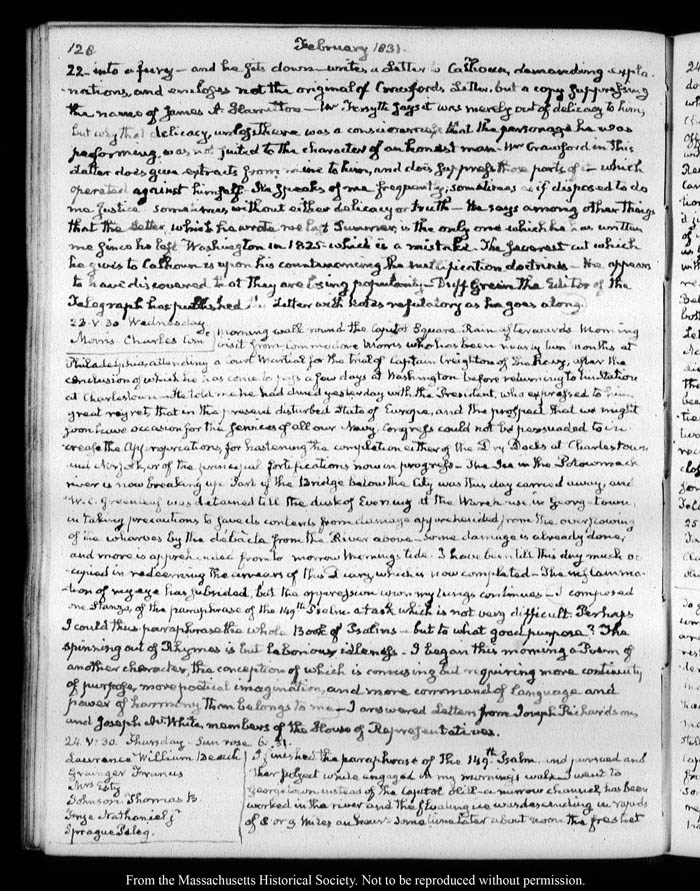 128. February 1831.
22- into a fury - and he sets down - writes a Letter to Calhoun, demanding expla-
nations, and encloses not the original of Crawfords Letter, but a copy suppressing
the names of James A. Hamilton - Mr Forsyth says it was merely out of delicacy to him,
but why that delicacy, unless there was a consciousness that the personage he was
performing, was not suited to the character of an honest man - Mr Crawford in this
Letter does give extracts from mine to him, and does suppress those parts of it which
operated against himself. He speaks of me frequently, sometimes as if disposed to do
me Justice - sometimes without either delicacy or truth - He says among other things
that the Letter, which he wrote me last Summer, is the only one which he has written
me since he left Washington in 1825 - which is a mistake. The severest cut which
he gives to Calhoun is upon his countenancing the nullification doctrines - He appears
to have discovered that they are losing popularity - Duff Green the Editor of the
Telegraph has published the Letter with Notes refutatory as he goes along.
23. V. 30. Wednesday
Morris Charles Com.
Morning walk round the Capitol Square. Rain afterwards. Morning
visit from Commodore Morris who has been nearly two months at
Philadelphia attending a Court Martial for the trial of Captain Creighton of the Navy, after the
conclusion of which he has come to pass a few days at Washington before returning to his Station
at Charlestown - He told me he had dined yesterday with the President, who expressed to him
great regret, that in the present disturbed State of Europe, and the prospect that we might
soon have occasion for the services of all our Navy, Congress could not be persuaded to in-
crease the Appropriations, for hastening the completion either of the Dry Docks at Charlestown
and Norfolk, or of the principal fortifications now in progress - The Ice in the Potowmack
river is now breaking up. Part of the Bridge below the City was this day carried away, and
W. C. Greenleaf was detained till the dusk of Evening at the Warehouse in George-town,
in taking precautions to save its contents from damage apprehended from the overflowing
of the wharves by the debacle from the River above - Some damage is already done,
and more is apprehended from to morrow Mornings tide. I have been till this day much oc-
cupied in redeeming the arrears of this Diary which is now completed - The inflamma-
tion of my eye has subsided, but the oppression upon my lungs continues - I composed
one Stanza, of the paraphrase of the 149th Psalm - a task which is not very difficult. Perhaps
I could thus paraphrase the whole Book of Psalms - but to what good purpose? The
spinning out of Rhymes is but laborious idleness - I began this morning a Poem of
another character, the conception of which is amusing but requiring more continuity
of purpose, more poetical imagination, and more command of language and
power of harmony than belongs to me - I answered Letters from Joseph Richardson,
and Joseph M. White, members of the House of Representatives.
24. V: 30. Thursday. Sun rose 6. 31.
Lawrence William Beach
Grainger Francis
Johnson Thomas B
Frye Nathaniel Jr
Sprague Peleg.
I finished the paraphrase of the 149th Psalm, and pursued
other subject while engaged in my morning's walk - I went to
Georgetown instead of the Capitol Hill - a narrow channel has been
worked in the river and the floating ice was descending in rapids
of 8 or 9 miles an hour - Sometime later about noon the freshet
From the Massachusetts Historical Society. Not to be reproduced without permission.